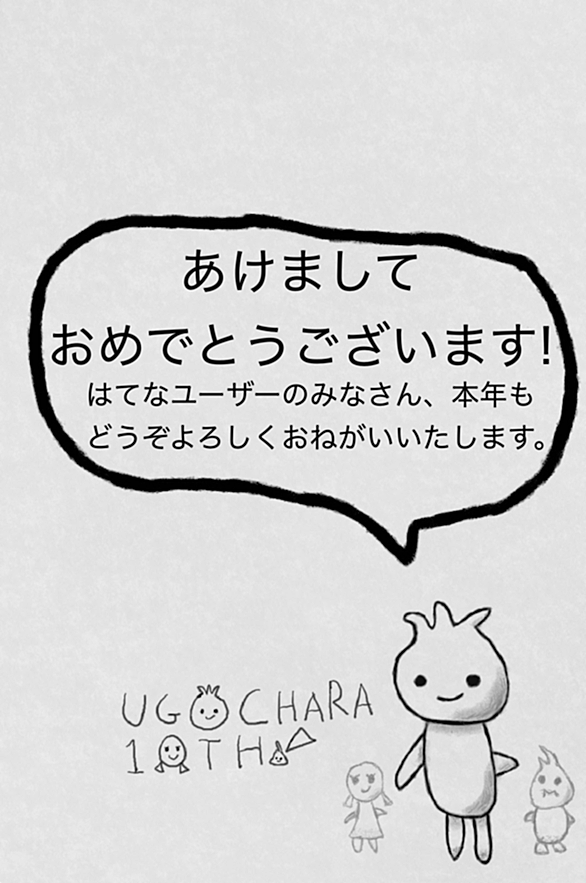 あけまして
おめでとうございます!
はてなユーザーのみなさん、本年も
どうぞよろしくおねがいいたします。
UGOCHARA
10TH